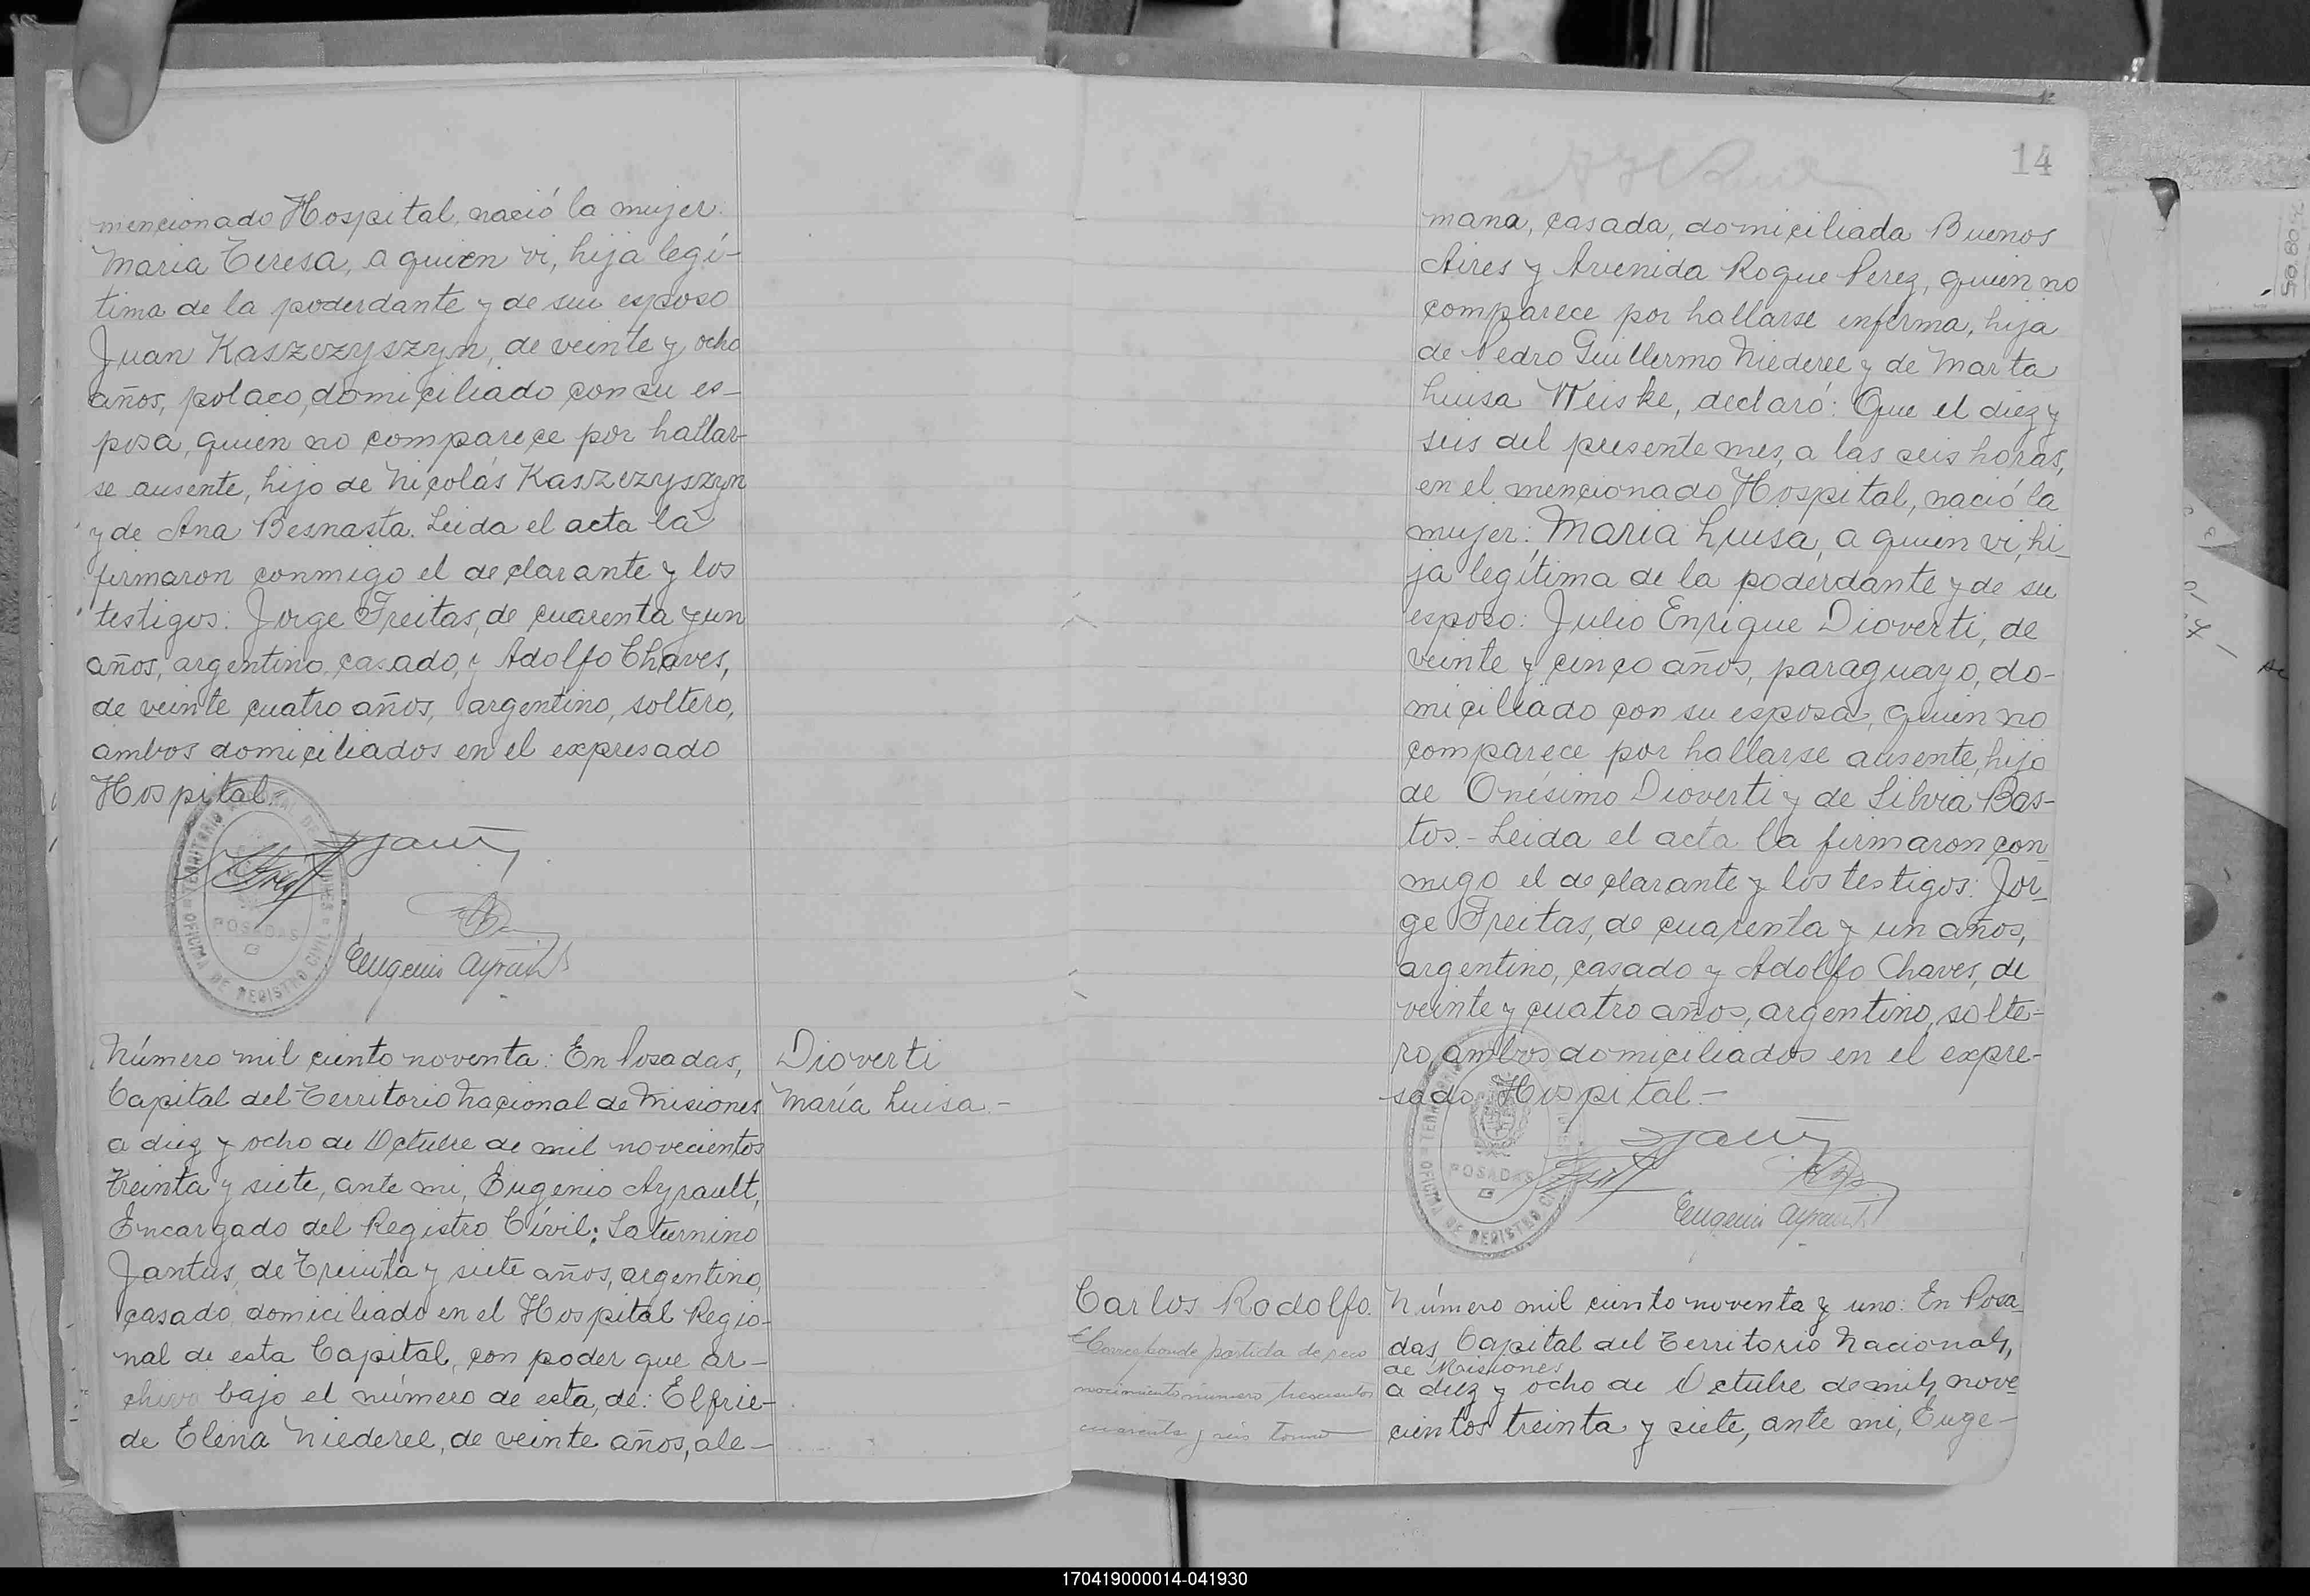 mencionado Hospital, nació la mujer.
Maria Teresa, a quien vi, hija legí-
tima de la poderdante y de su esposo
Juan Kaszczyszyn, de veinte y ocho
años, polaco, domiciliado con su es-
posa, quien no comparece por hallar-
se ausente, hijo de Nicolás Kaszczyszyn
y de Ana Besnasta. Leida el acta la
firmaron conmigo el declarante y los
testigos: Jorge Freitas, de cuarenta y un
años, argentino, casado, y Adolfo Chaves,
de veinte cuatro años, argentino, soltero,
ambos domiciliados en el expresado
Hospital.
TERRITORIO NACIONAL DE MISIONES
POSADAS
OFICINA DE REGISTRO CIVIL
Eugenio Ayrault
Número mil ciento noventa: En Posadas,
Capital del Territorio Nacional de Misiones
a diez y ocho de Octubre de mil novecientos
treinta y siete, ante mi, Eugenio Ayrault,
Encargado del Registro Civil; Saturnino
Jantus, de treinta y siete años, argentino,
casado, domiciliado en el Hospital Regio-
nal de esta Capital, con poder que ar-
chivo bajo el número de esta, de: Elfrie-
de Elena Niederee, de veinte años, ale-
Dioverti
María Luisa.-
14
mana, casada, domiciliada Buenos
Aires y Avenida Roque Perez, quien no
comparece por hallarse enferma, hija
de Pedro Guillermo Niederee y de Marta
Luisa Weiske, declaró: Que el diez y
seis del presente mes, a las seis horas,
en el mencionado Hospital, nació la
mujer: Maria Luisa, a quien vi, hi-
ja legítima de la poderdante y de su
esposo: Julio Enrique Dioverti, de
veinte y cinco años, paraguayo, do-
miciliado con su esposa, quien no
comparece por hallarse ausente, hijo
de Onésimo Dioverti y de Silvia Bas-
tos.- Leida el acta la firmaron con
migo el declarante y los testigos: Jor-
ge Freitas, de cuarenta y un años,
argentino, casado y Adolfo Chaves, de
veinte y cuatro años, argentino, solte-
ro, ambos domiciliados en el expre-
sado Hospital.-
POSADAS
OFICINA DE REGISTRO CIVIL
Eugenio Ayrault
Carlos Rodolfo.
Corresponde partida de reco
nocimiento número trescientos
cuarenta y seis tomo
Número mil ciento noventa y uno: En Posa
das, Capital del Territorio Nacional,
de Misiones
a diez y ocho de Octubre de mil nove
cientos treinta y siete, ante mi, Euge-
170419000014-041930